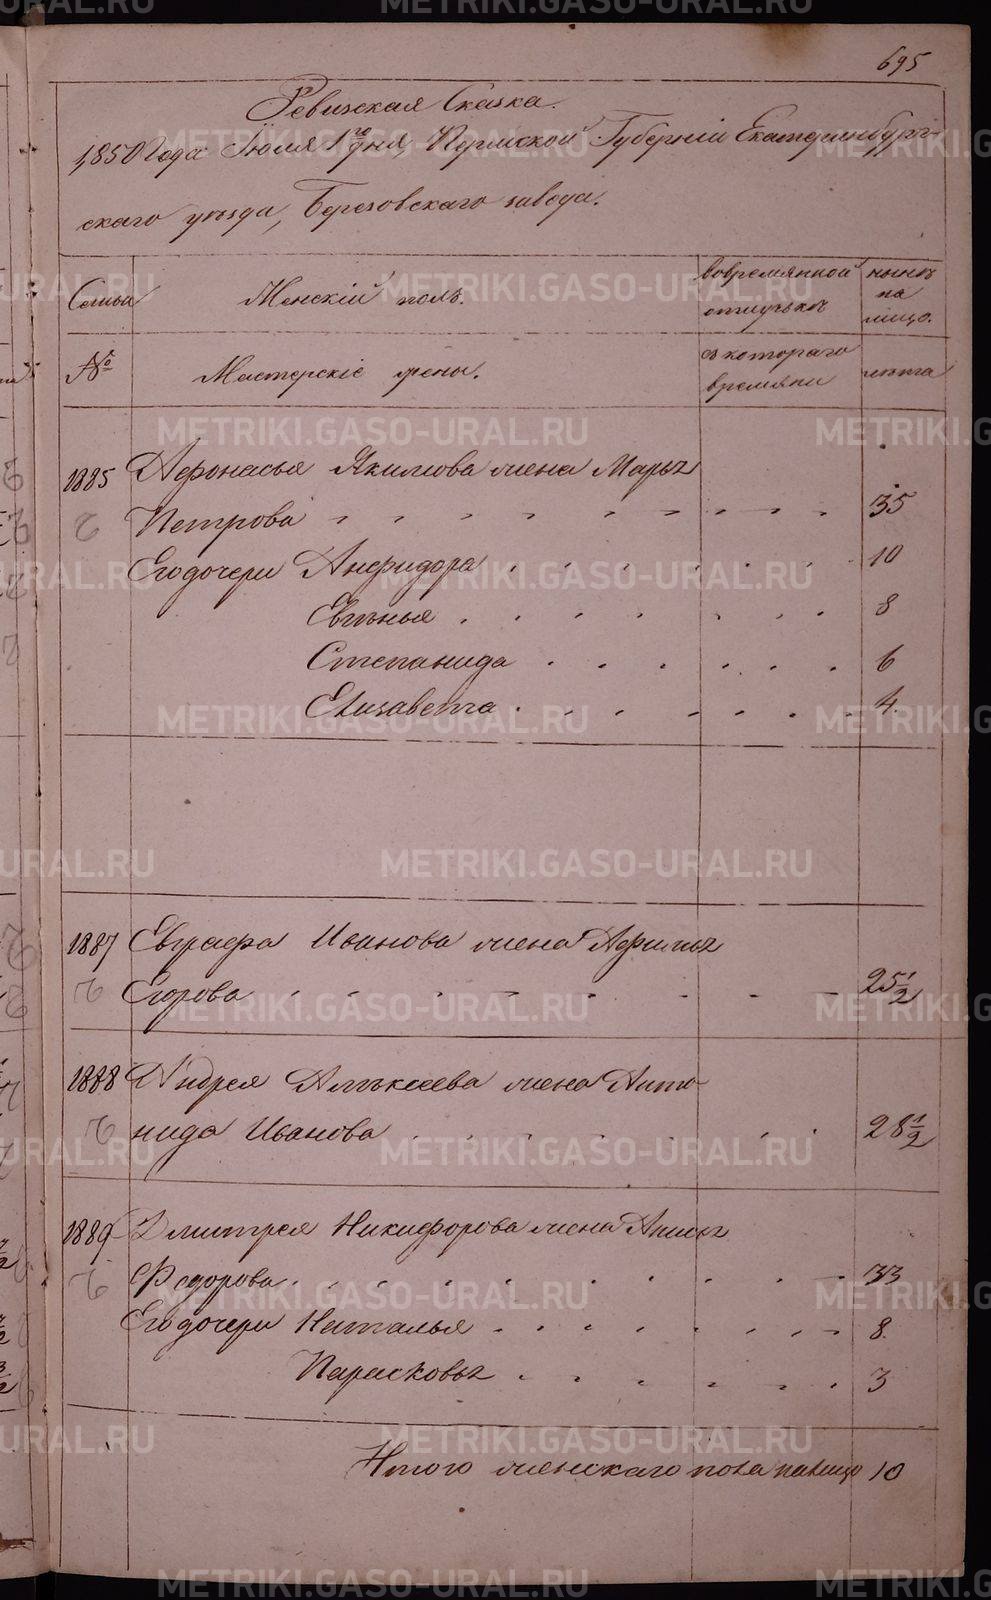 695
Ревизская Сказка.
1850 года Июля 1го дня, Пермской Губернiи Екатеринбург-
скаго уѣзда, Березовскаго завода.
Семьи Женскiй полъ. вовремянной отлучькѣ нынѣ на лицо.
№ Мастерскiе жены. съ котораго времяни лѣта
1885 Афонасья Якимова жена Марья
Петрова 35
Его дочери Анфидора 10
Евгѣнья 8
Степанида 6
Елизавета 4.
1887 Евграфа Иванова жена Афимья
Егорова 25½
1888 Андрея Алѣксеева жена Анто-
нида Иванова 28½
1889 Дмитрея Никифорова жена Анисья
Федорова 33
Его дочери Наталья 8.
Парасковья 3
Итого женскаго пола налицо 10
METRIKI.GASO-URAL.RU